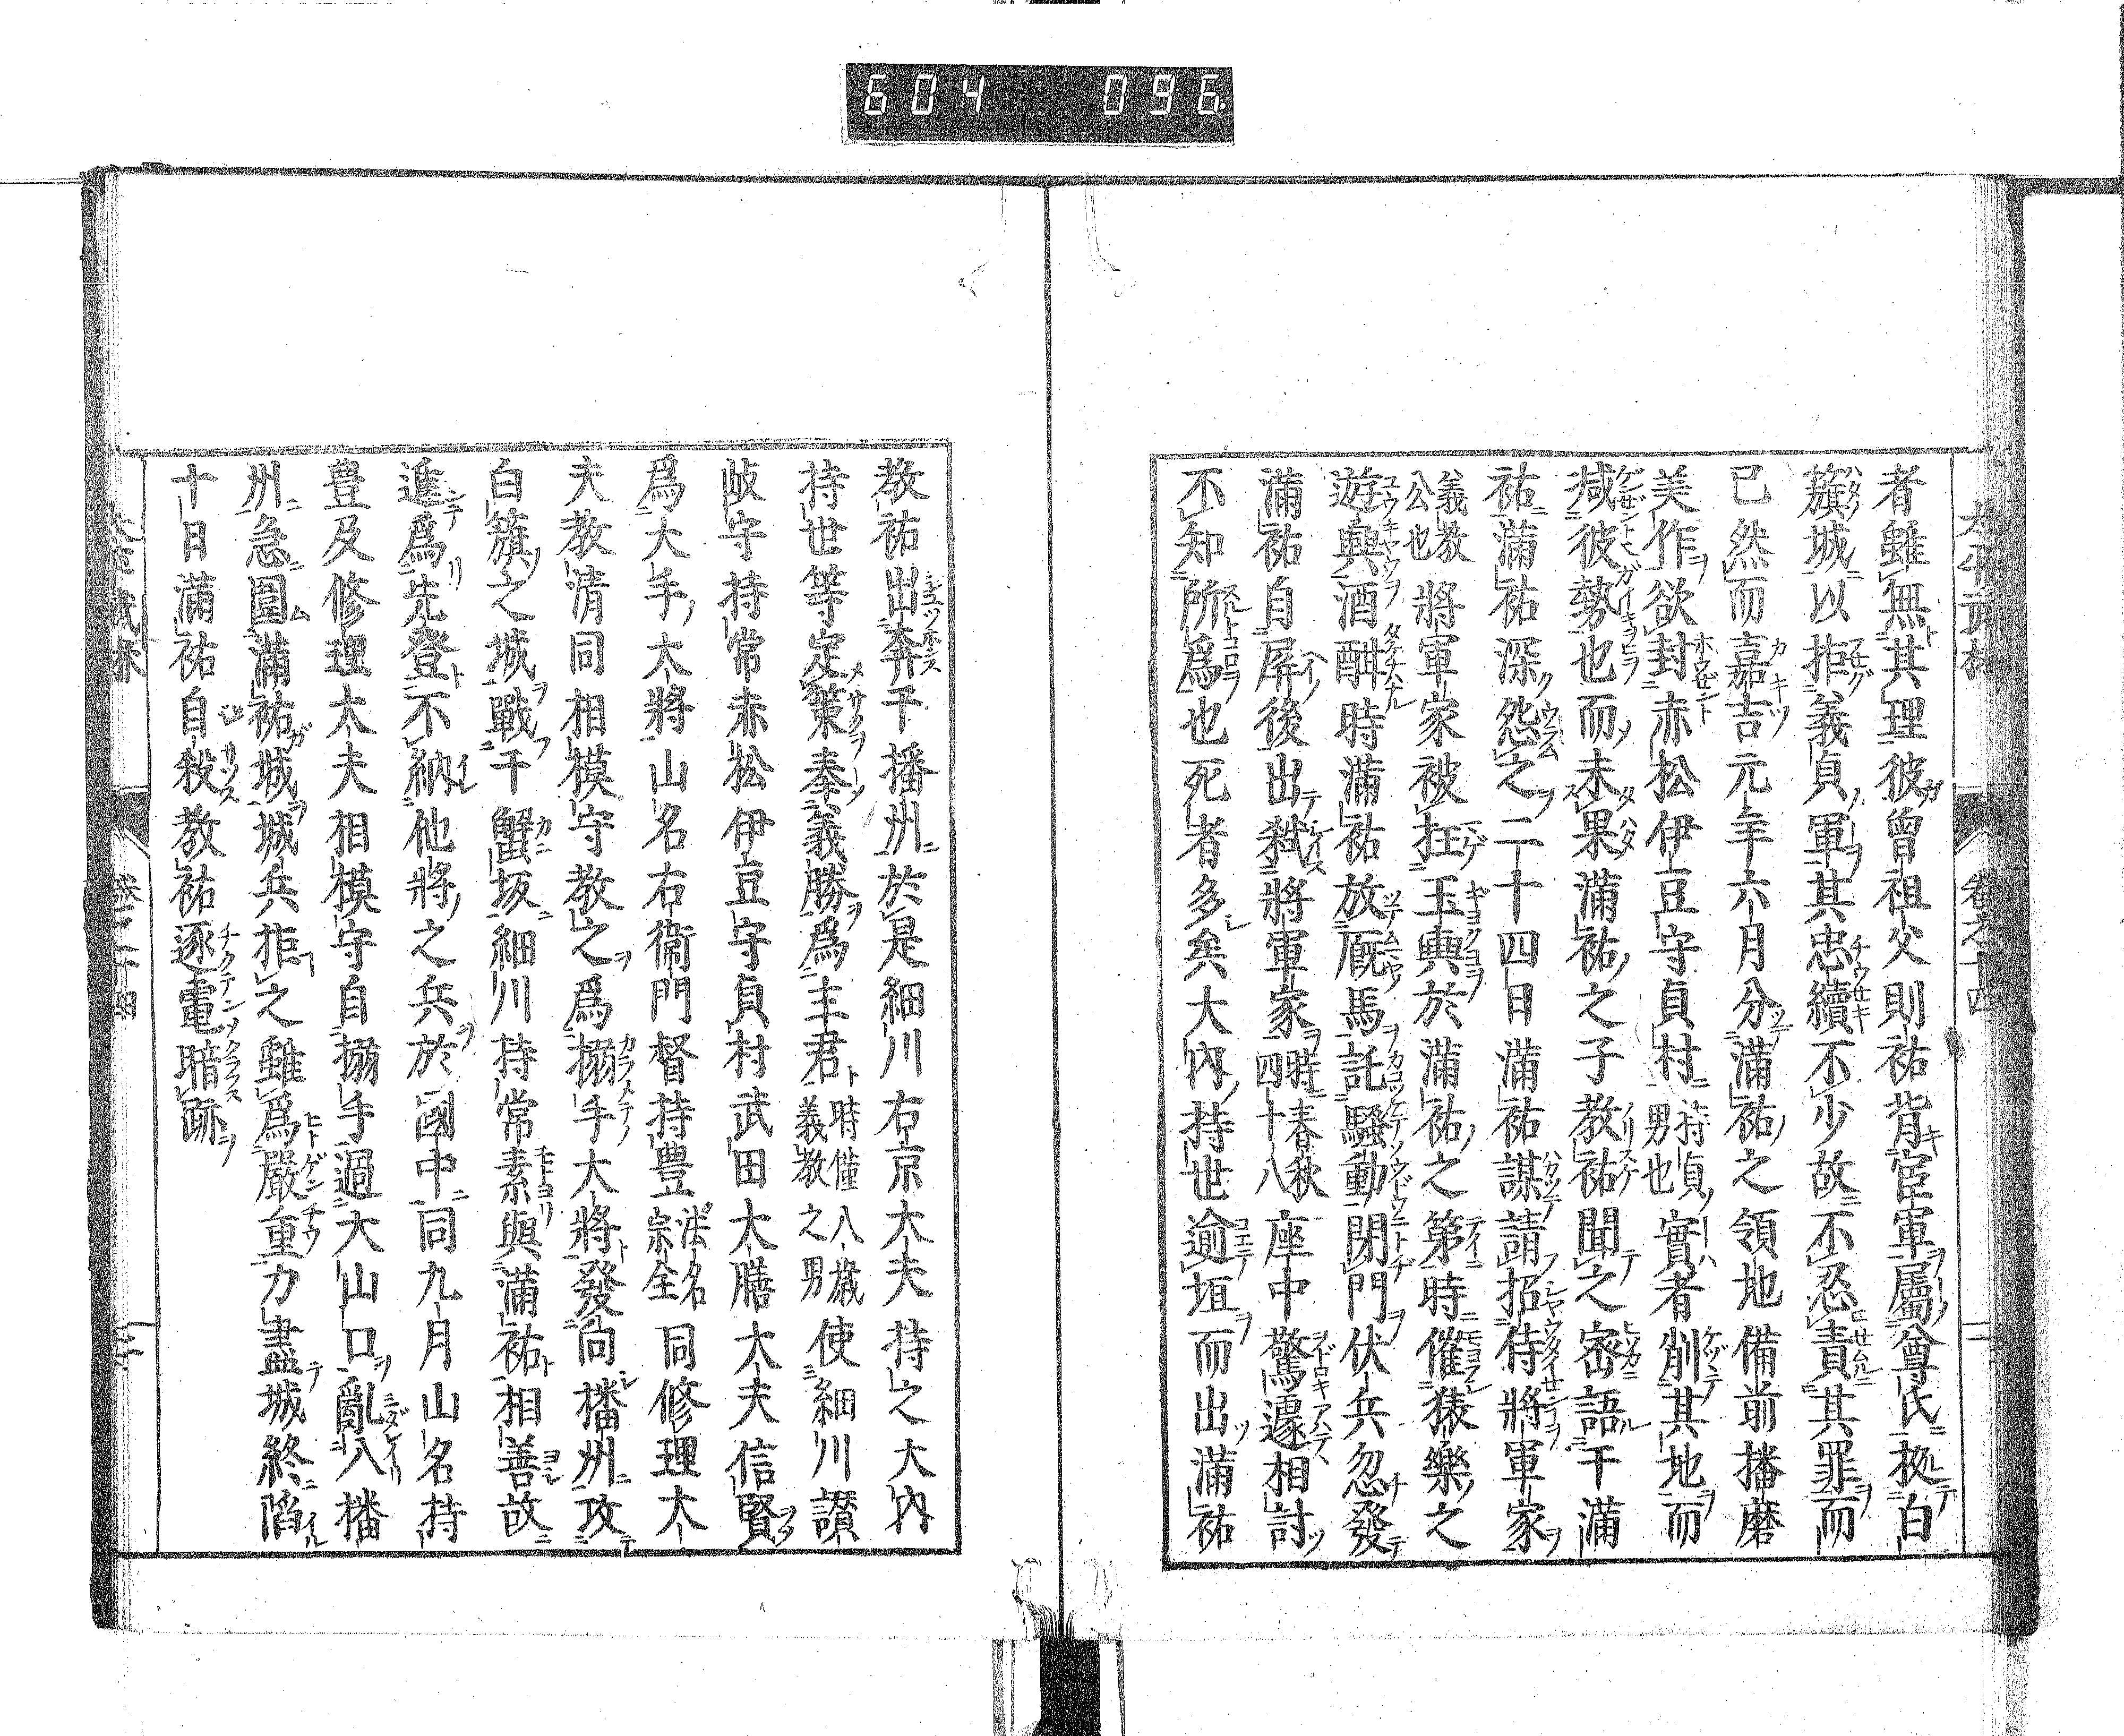 604 096
者雖無其理彼曾祖父則祐背官軍屬尊氏拠白
籏城以拒義貞軍其忠續不少故不忍責其罪而
已然而嘉吉元年六月分滿祐之領地備前播磨
美作欲封赤松伊豆守貞村持貞男也實者削其地而
減彼勢也而未果滿祐之子教祐聞之密語于滿
祐滿祐深怨之二十四日滿祐謀請招待將軍家
義教公也將軍家被抂玉輿於滿祐之第時催猿樂之
遊興酒酣時滿祐放厩馬託騷動閉門伏兵忽發
滿祐自屏後出弑將軍家時春秋四十八座中驚遽相討
不知所爲也死者多矣大内持世逾垣而出滿祐
卷之十四
二
教祐出奔于播州於是細川右京大夫持之大内
持世等定策奉義勝爲主君時僅八歲義教之男使細川讃
岐守持常赤松伊豆守貞村武田大膳大夫信賢
爲大手大將山名右衞門督持豊法名宗全同修理大
夫教清同相模守教之爲搦手大將發向播州攻
白籏之城戰于蟹坂細川持常素與滿祐相善故
遞爲先登不納他將之兵於國中同九月山名持
豊及修理大夫相模守自搦手過大山口亂入播
州急圍滿祐城城兵拒之雖爲嚴重力盡城終陷
十日滿祐自殺教祐逐電暗跡